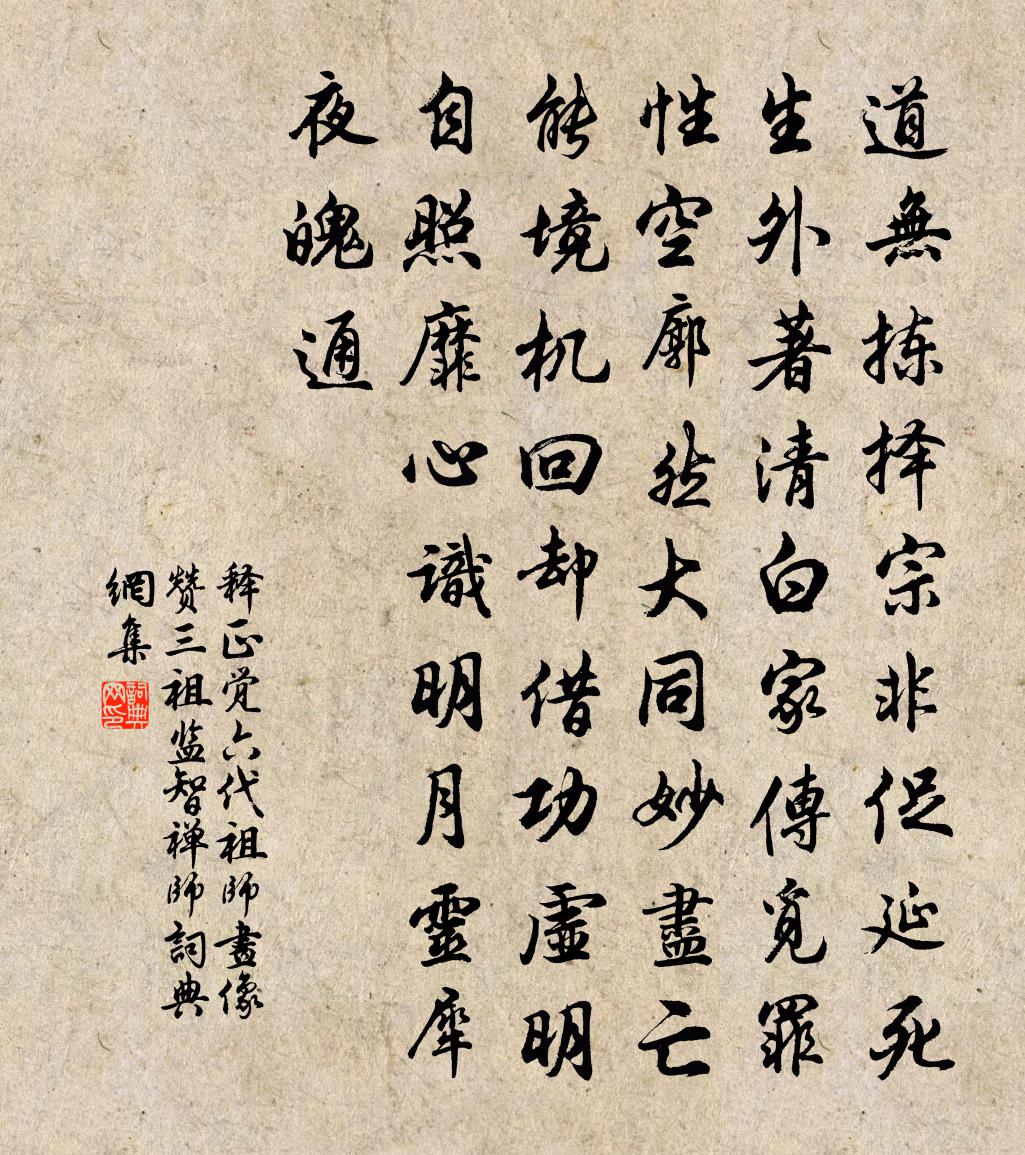 道無拣择宗非促延死
生外著清白家傳覓罪
性空廓然大同妙盡亡
能境机回却借功虛明
自照靡心識明月靈犀
夜魄通
释正觉六代祖師畫像
赞三祖监智禅師詞典
網集
詞典
网印